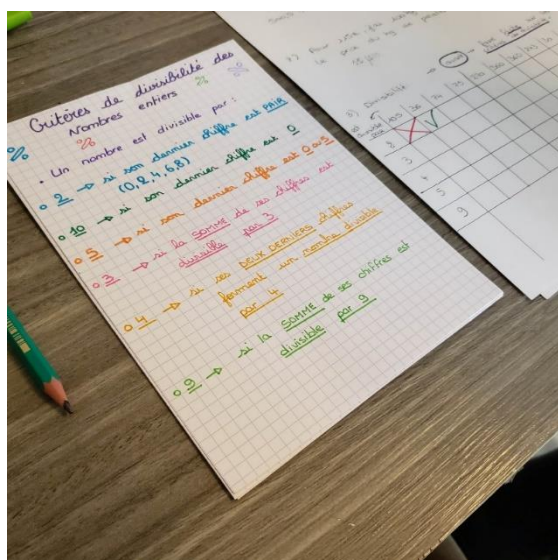 Critères de divisibilité des
Nombres entiers
%
%
%
%
• Un nombre est divisible par :
o 2 → si son dernier chiffre est PAIR
(0,2,4,6,8)
o 10 → si son dernier chiffre est 0
o 5 → si son dernier chiffre est 0 ou 5
o 3 → si la SOMME de ses chiffres est
divisible par 3
o 4 → si ses DEUX DERNIERS chiffres
forment un nombre divisible
par 4
o 9 → si la SOMME de ses chiffres est
divisible par 9
Pour
le prix du kg de
Divisibilité
2
3
4
5
9